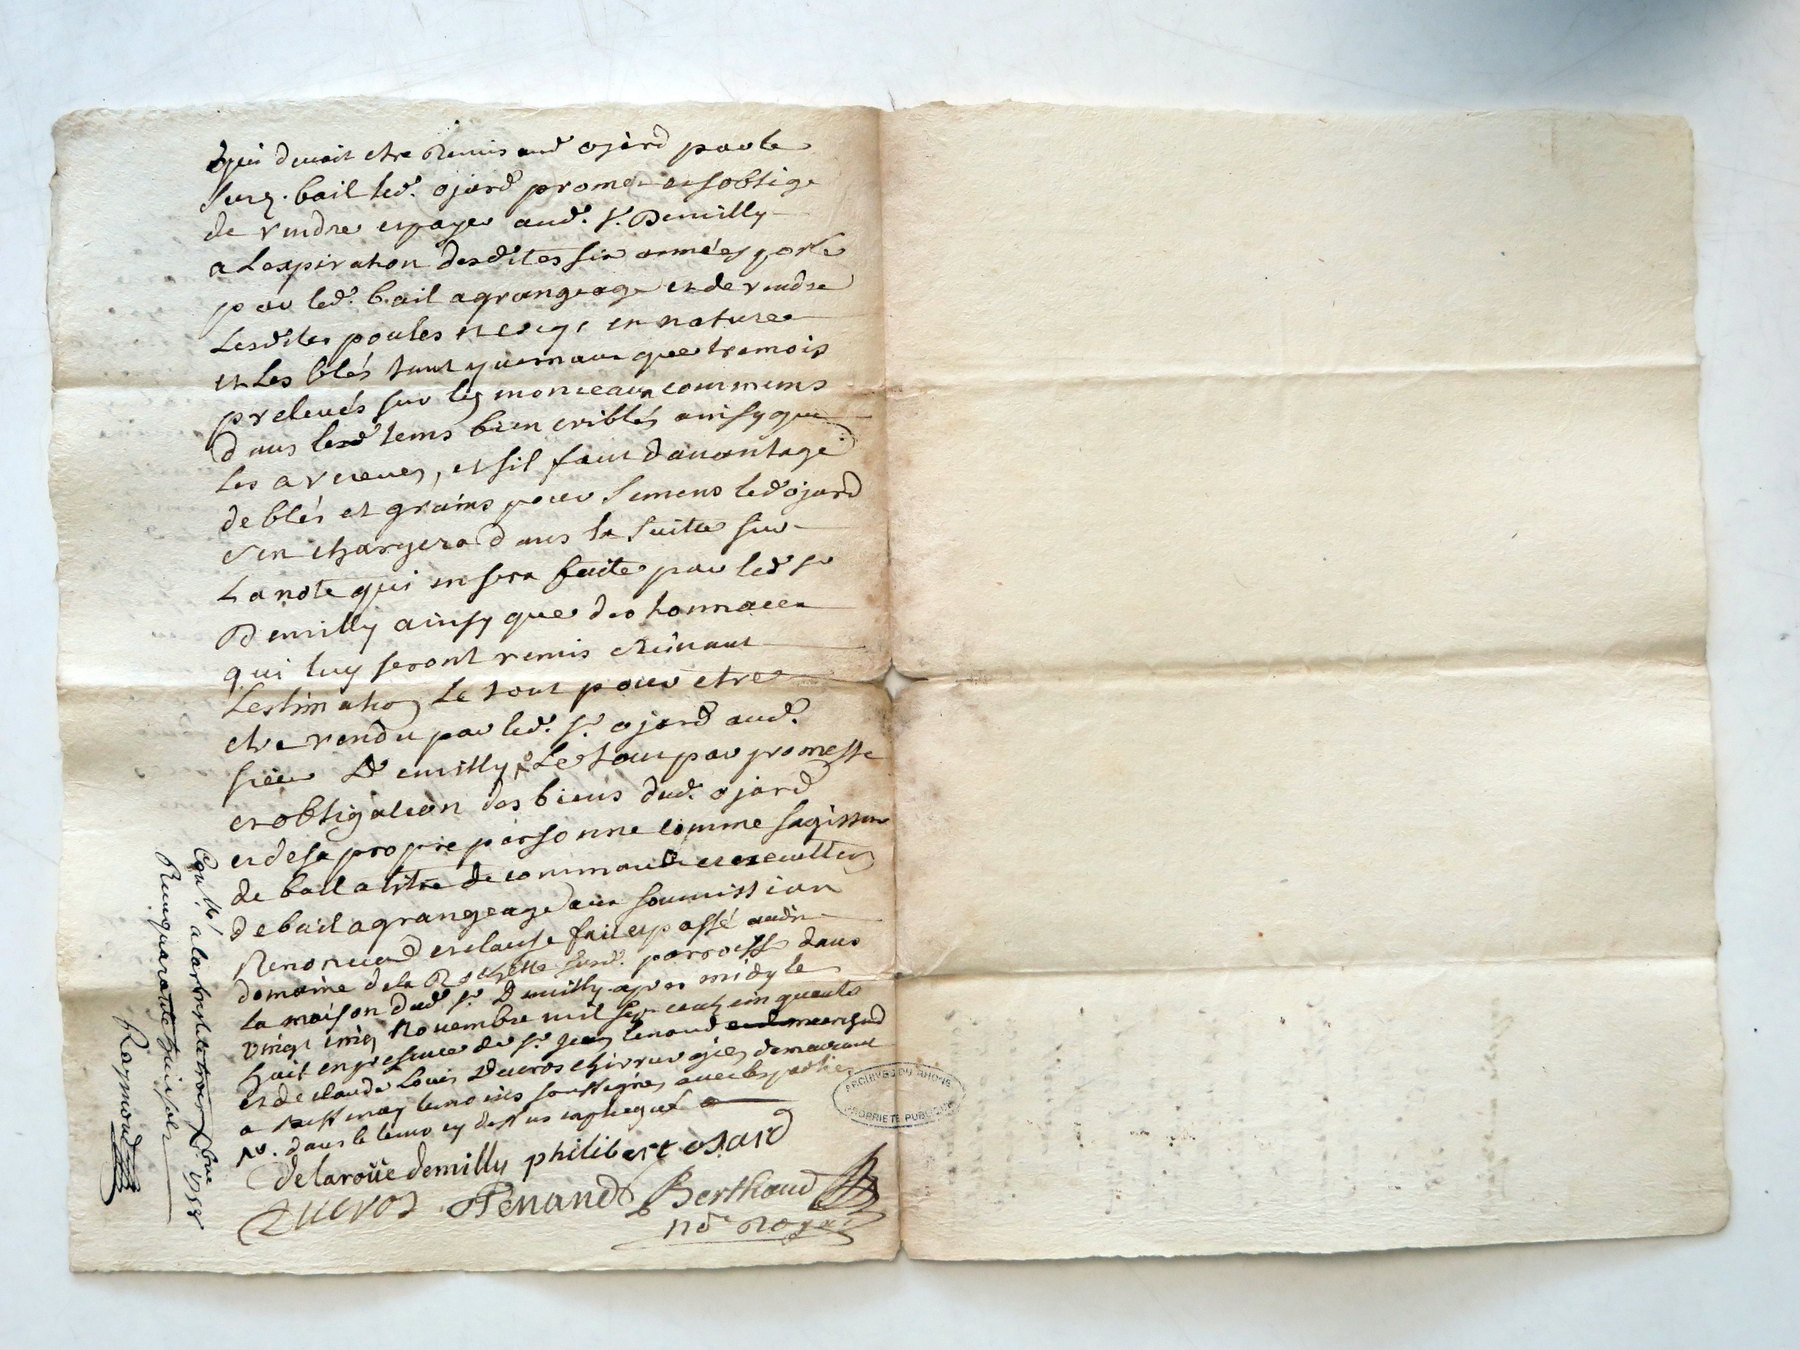 qui devoit etre Remis aud ojard par le
Susd. bail led. ojard promet et soblige
de rendre et payer aud. Sr. Demilly
a Lexpiration desdites six années porté
par led. bail a grangeage et de rendre
Lesdites poules et en nature
et Les blés tant yvernaux que tremois
prelevés sur les monceaux communs
dans lesd tems bien criblés ainsy que
Les , et sil faut davantage
de blés et grains pour Semens led ojard
sen chargera dans la Suitte sur
La note qui en sera faite par led Sr
Demilly ainsy que des tonnaces
qui luy seront remis suivant
Lestimation Le tout pour etre
etre rendu par led. Sr. ojard aud.
Sieur Demilly Le tout par promesse
et obligation des biens dud. ojard
et de sa propre personne comme sagissant
de bail a titre de commande et
de bail a grangeage aux soumission
Renonciaõ et clause fait et passé audit
domaine de la Rochette susd. paroisse dans
la maison dud Sr. Demilly apres midy le
vingt cinq Novembre mil sept cent cinquante
huit en presence de Sr. Jean tenand marchand
et de claude Louis Ducros chirurgien demeurant
a temoins soussignés avec les parties
dans le
delaroüe demilly philibert ojard
Ducros Tenand Berthaud
No. Royal
Con.llé a le trois Xbre 1758
Reçu quarante huit sols
Raymond
ARCHIVES DU RHONE
PROPRIETE PUBLIQUE